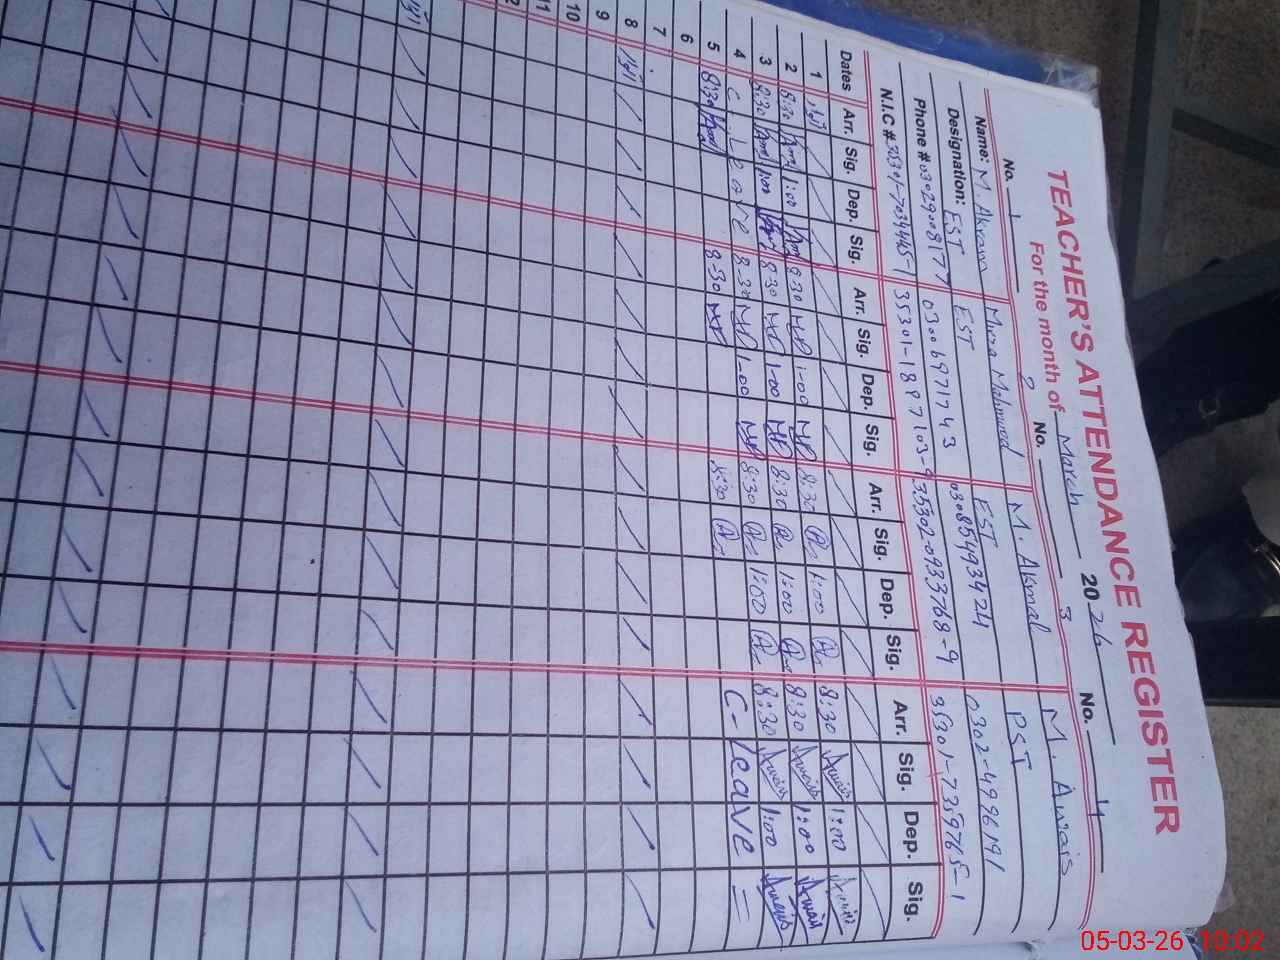 TEACHER'S ATTENDANCE REGISTER
For the month of March 2026
No. 1 2 No. 3 No. 4
Name: M. Akram Mirza Mahmood M. Akmal M. Awais
Designation: EST EST EST PST
Phone # 03029008177 03006971743 03085493424 0302-4996191
N.I.C # 35301-1887103-9 35302-0933768-9 35301-7359765-1
Dates Arr. Sig. Dep. Sig. Arr. Sig. Dep. Sig. Arr. Sig. Dep. Sig. Arr. Sig. Dep. Sig.
1 اتوار
2 8:30 1:00 8:30 1-00 8:30 1:00 8:30 Awais 1:00 Awais
3 8:30 1:00 8:30 1-00 8:30 1:00 8:30 Awais 1:00 Awais
4 C-Leave 8-30 1-00 8:30 1:00 8:30 Awais 1:00 Awais
5 8:30 8-30 8:30 C-Leave
6
7
8 اتوار
9
10
11
12
اتوار
05-03-26 10:02